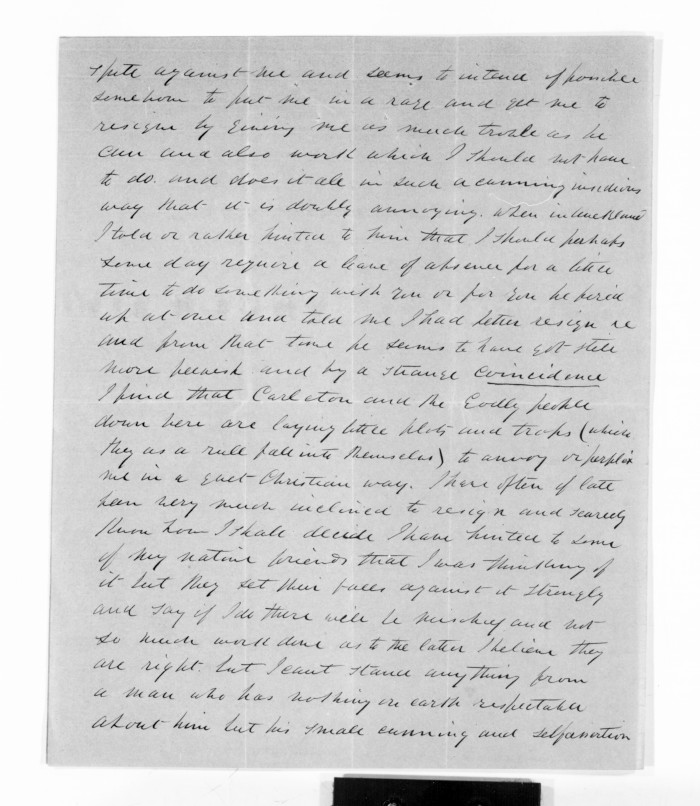 spite against me and seems to intend if possible
somehow to put me in a rage and get me to
resign by giving me as much trouble as he
can and also work which I should not have
to do. and does it all in such a cunning insidious
way that it is doubly annoying. when in Auckland
I told or rather hinted to him that I should perhaps
some day require a leave of absence for a little
time to do something with you or for you he fired
up at once and told me I had better resign &c
and from that time he seems to have got still
more peevish and by a strange coincidence
I find that Carleton and the Godly people
down here are laying little plots and traps (which
they as a rule fall into themselves) to annoy or perplex
me in a quiet Christian way. I have often of late
been very much inclined to resign and scarcely
know how I shall decide I have hinted to some
of my native friends that I was thinking of
it but they set their faces against it strongly
and say if I do there will be mischief and not
so much work done as to the latter I believe they
are right. but I cant stand anything from
a man who has nothing on earth respectable
about him but his small cunning and selfassertion